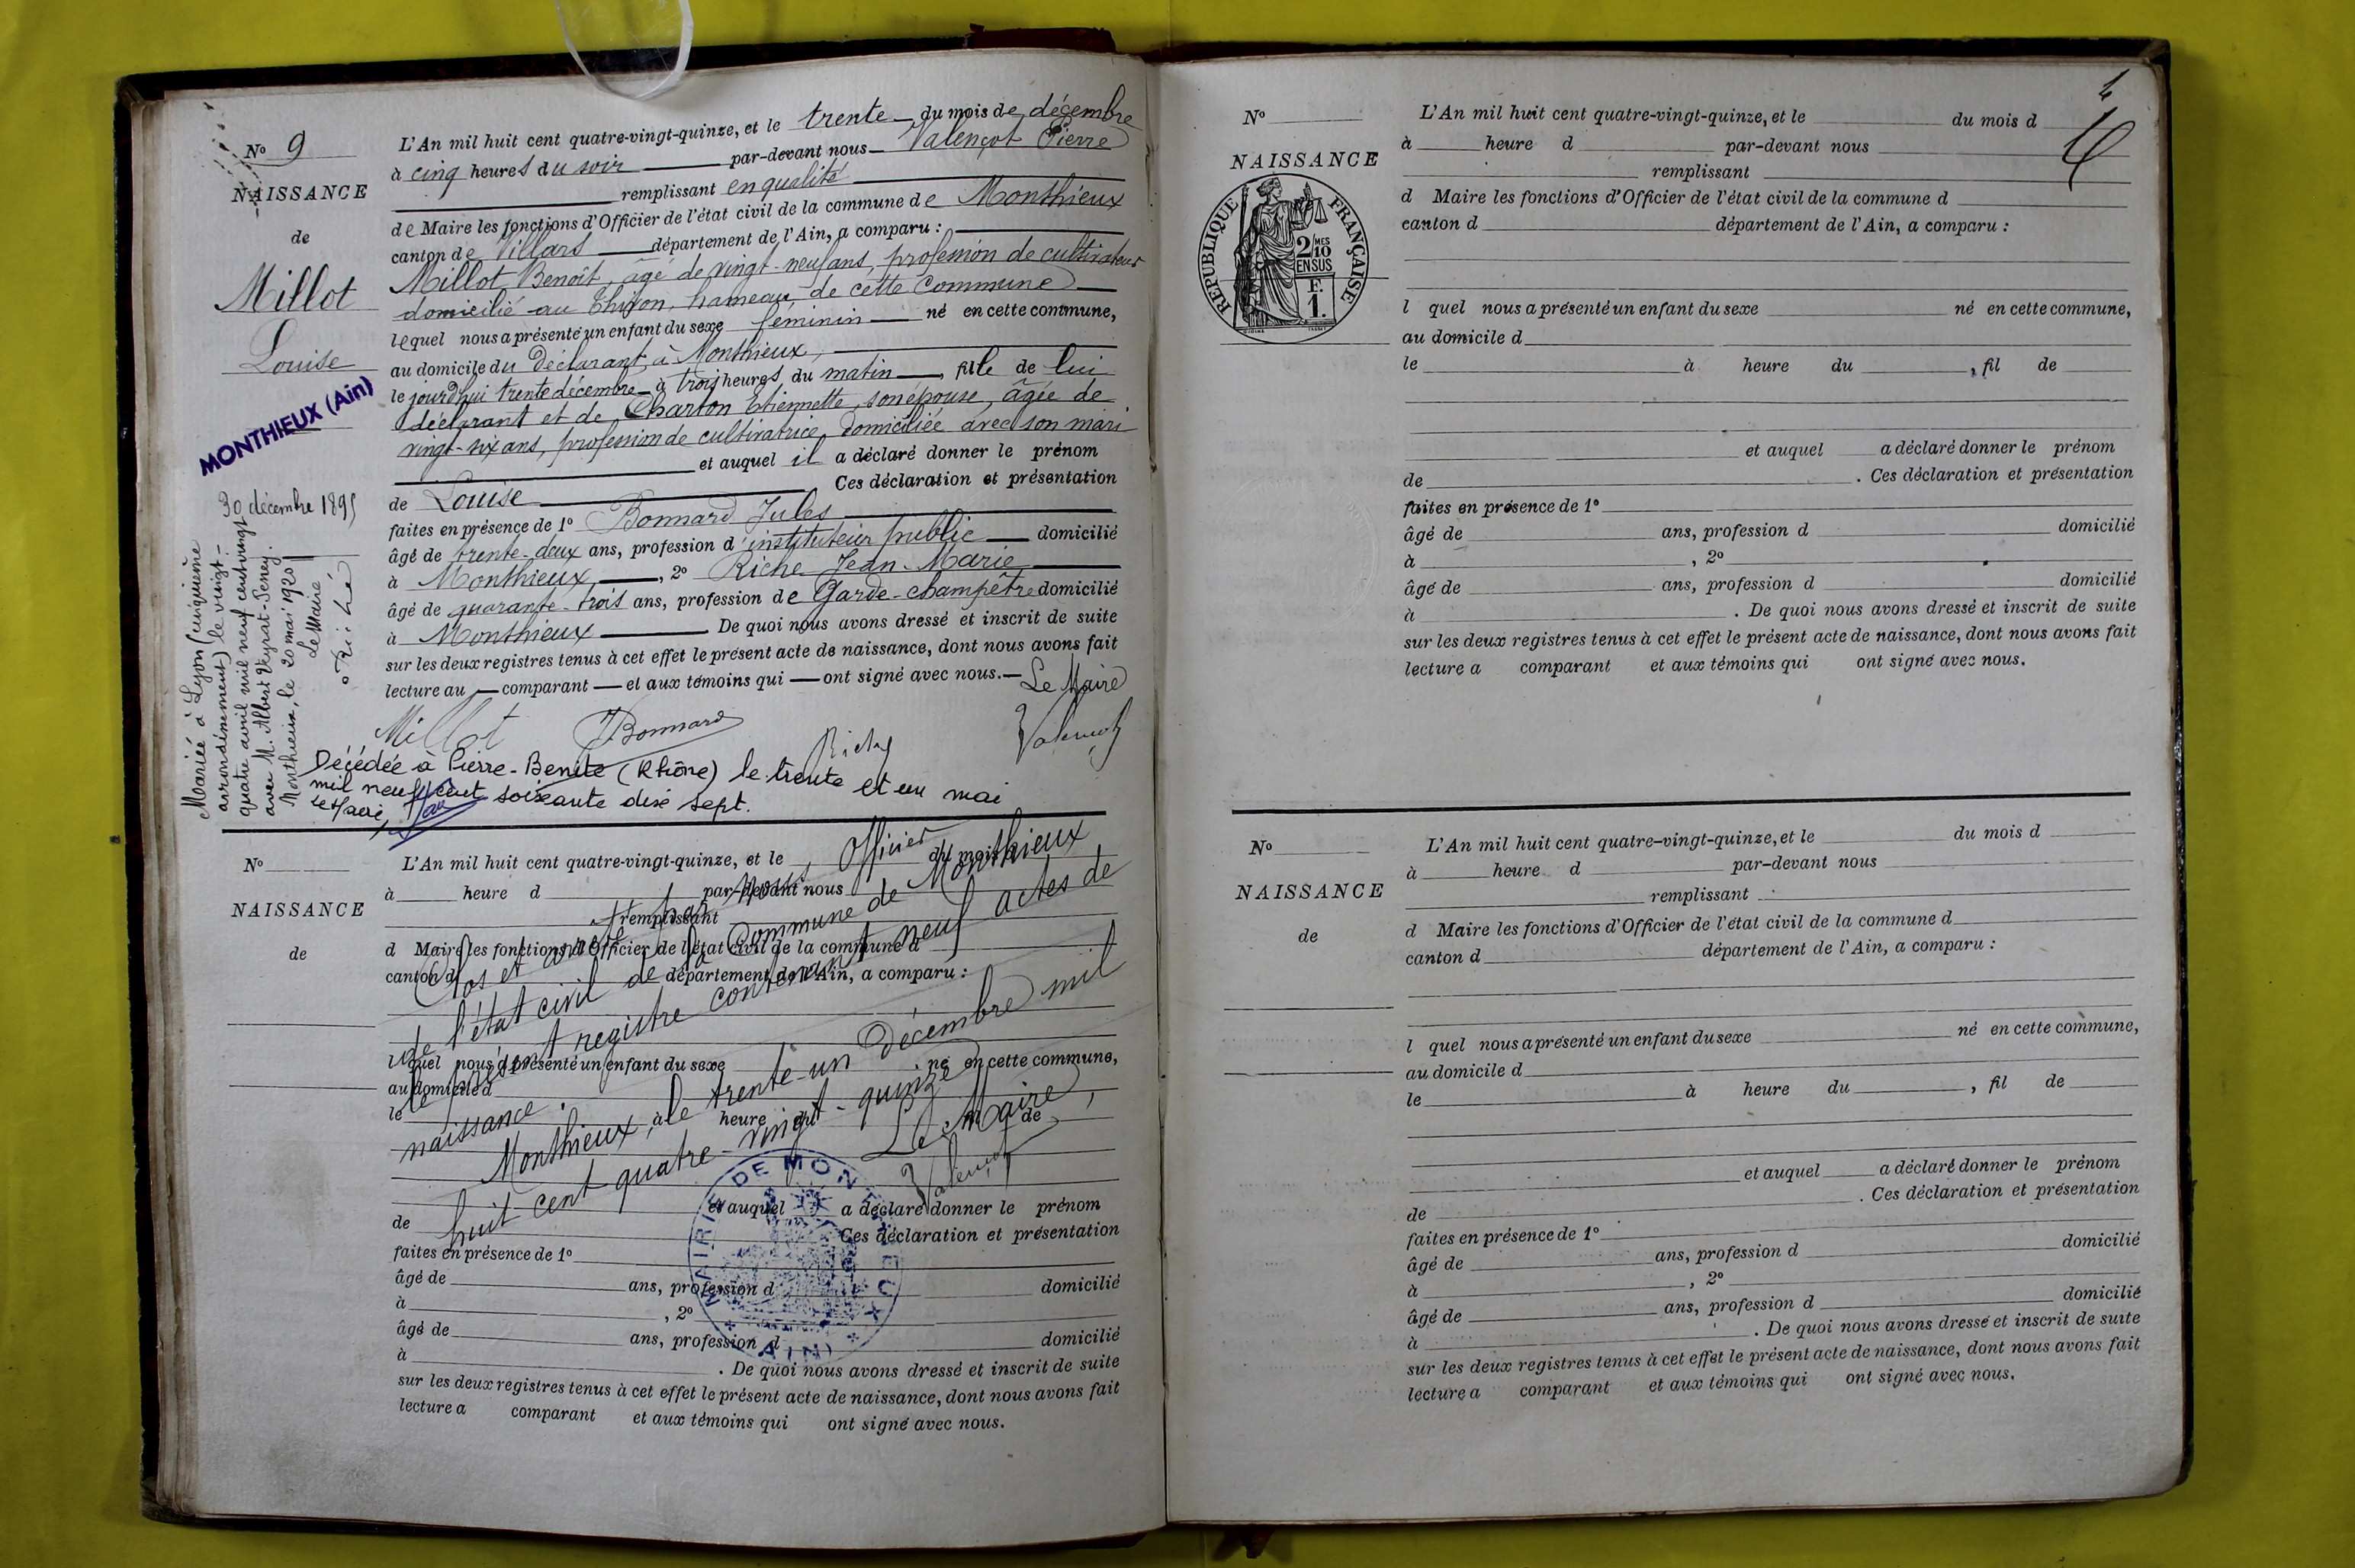 N° 9
NAISSANCE
de
Millot
Louise
MONTHIEUX (Ain)
30 décembre 1895
Mariée à Lyon (cinquième
arrondissement) le vingt-
quatre avril mil neuf cent vingt
avec M. Albert Peyrat-Seney.
Monthieux, le 20 mai 1920
Le Maire
Riché
L'An mil huit cent quatre-vingt-quinze, et le trente du mois de décembre
à cinq heures du soir par-devant nous Valençot Pierre
remplissant en qualité
de Maire les fonctions d'Officier de l'état civil de la commune de Monthieux
canton de Villars département de l'Ain, a comparu :
Millot Benoît, âgé de vingt-neuf ans, profession de cultivateur
domicilié au Thiron, hameau de cette Commune
lequel nous a présenté un enfant du sexe féminin né en cette commune,
au domicile du déclarant, à Monthieux,
le jourd'hui trente décembre à trois heures du matin, fille de lui
déclarant et de Charton Etiennette, son épouse, âgée de
vingt-six ans, profession de cultivatrice, domiciliée avec son mari
et auquel il a déclaré donner le prénom
de Louise Ces déclaration et présentation
faites en présence de 1° Bonnard Jules
âgé de trente-deux ans, profession d'instituteur public domicilié
à Monthieux, 2° Riche Jean-Marie
âgé de quarante-trois ans, profession de Garde-champêtre domicilié
à Monthieux De quoi nous avons dressé et inscrit de suite
sur les deux registres tenus à cet effet le présent acte de naissance, dont nous avons fait
lecture au comparant et aux témoins qui ont signé avec nous. Le Maire
Millot JBonnard Riche Valençot
Décédée à Pierre-Benite (Rhône) le trente et un mai
mil neuf cent soixante dix sept.
Le Maire,
N°
NAISSANCE
de
L'An mil huit cent quatre-vingt-quinze, et le du mois d
à heure d par-devant nous
remplissant
d Maire les fonctions d'Officier de l'état civil de la commune d
canton d département de l'Ain, a comparu :
l quel nous a présenté un enfant du sexe né en cette commune,
au domicile d
le à heure du , fil de
et auquel a déclaré donner le prénom
de Ces déclaration et présentation
faites en présence de 1°
âgé de ans, profession d domicilié
à , 2°
âgé de ans, profession d domicilié
à . De quoi nous avons dressé et inscrit de suite
sur les deux registres tenus à cet effet le présent acte de naissance, dont nous avons fait
lecture a comparant et aux témoins qui ont signé avec nous.
Clos et arrêté par nous, Officier
de l'état civil de la Commune de Monthieux,
le présent registre contenant neuf actes de
naissance.
Monthieux, le trente-un Décembre mil
huit cent quatre-vingt-quinze
Le Maire
Valençot
MAIRIE DE MONTHIEUX
(AIN)
4
N°
NAISSANCE
RÉPUBLIQUE FRANÇAISE
2/10 MES
EN SUS
F.
1.
L'An mil huit cent quatre-vingt-quinze, et le du mois d
à heure d par-devant nous
remplissant
d Maire les fonctions d'Officier de l'état civil de la commune d
canton d département de l'Ain, a comparu :
l quel nous a présenté un enfant du sexe né en cette commune,
au domicile d
le à heure du , fil de
et auquel a déclaré donner le prénom
de . Ces déclaration et présentation
faites en présence de 1°
âgé de ans, profession d domicilié
à , 2°
âgé de ans, profession d domicilié
à . De quoi nous avons dressé et inscrit de suite
sur les deux registres tenus à cet effet le présent acte de naissance, dont nous avons fait
lecture a comparant et aux témoins qui ont signé avec nous.
N°
NAISSANCE
de
L'An mil huit cent quatre-vingt-quinze, et le du mois d
à heure d par-devant nous
remplissant
d Maire les fonctions d'Officier de l'état civil de la commune d
canton d département de l'Ain, a comparu :
l quel nous a présenté un enfant du sexe né en cette commune,
au domicile d
le à heure du , fil de
et auquel a déclaré donner le prénom
de . Ces déclaration et présentation
faites en présence de 1°
âgé de ans, profession d domicilié
à , 2°
âgé de ans, profession d domicilié
à . De quoi nous avons dressé et inscrit de suite
sur les deux registres tenus à cet effet le présent acte de naissance, dont nous avons fait
lecture a comparant et aux témoins qui ont signé avec nous.